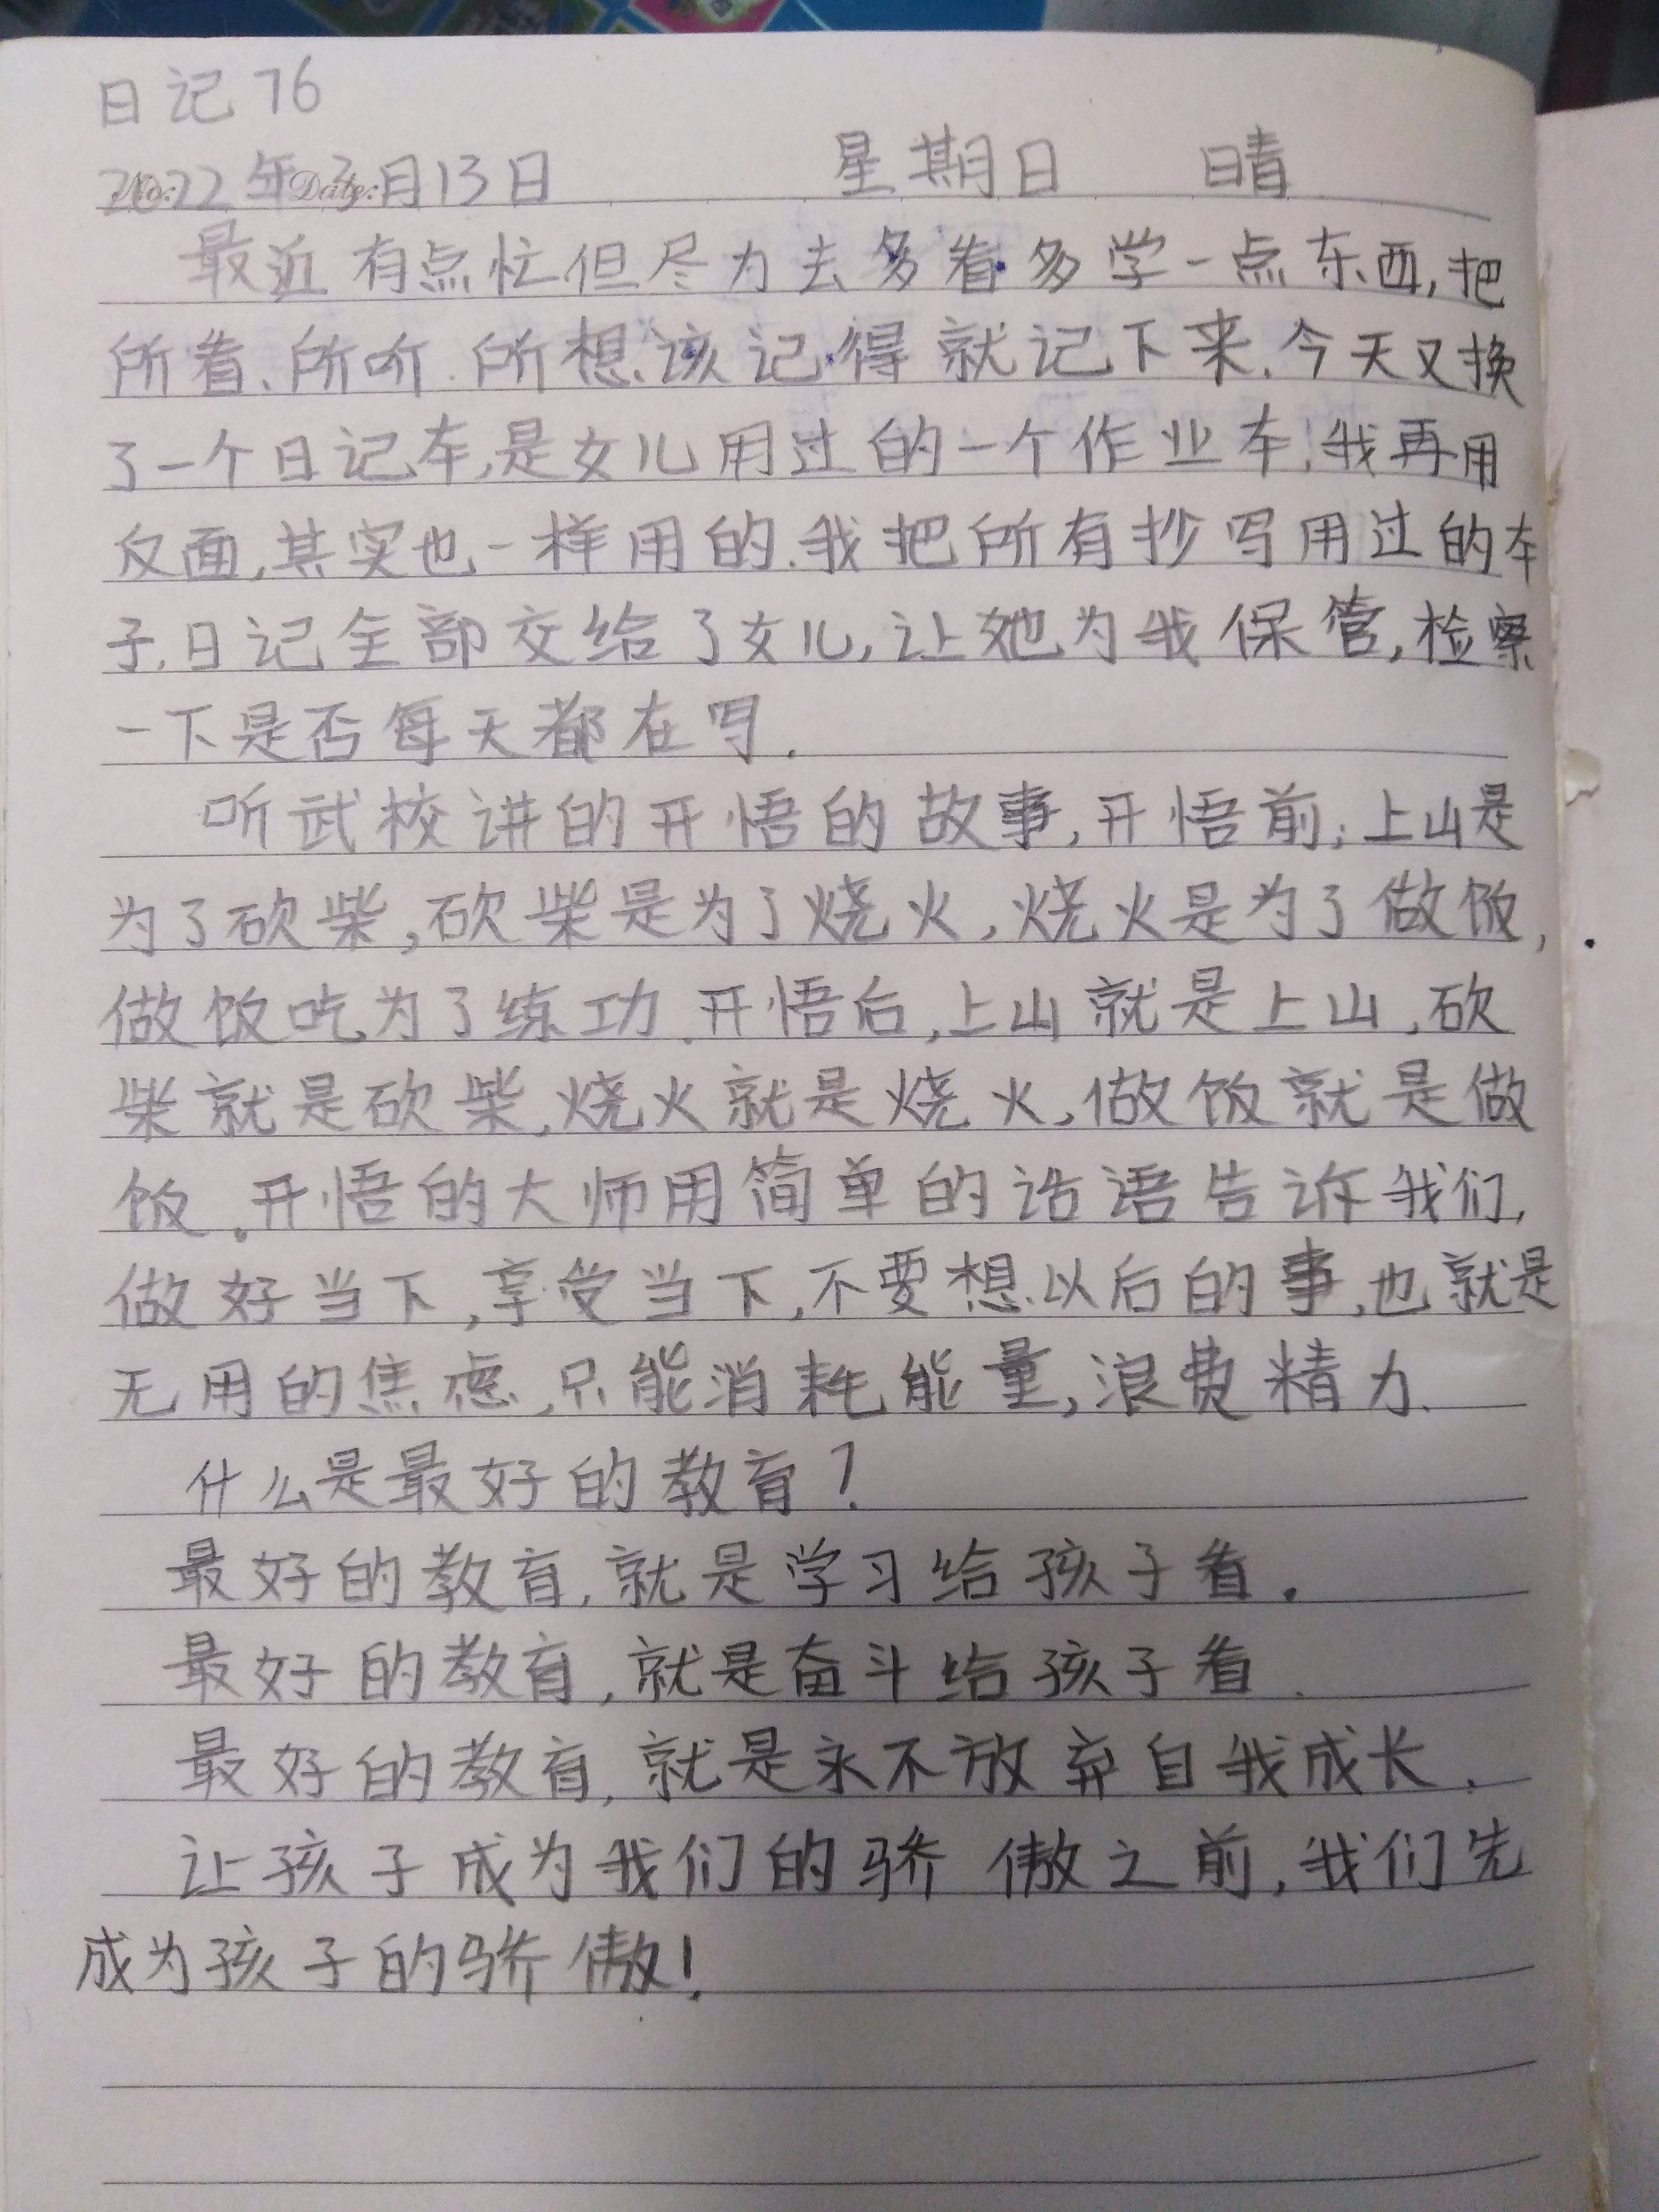 日记76
2022年3月13日 星期日 晴
最近有点忙但尽力去多看多学一点东西,把
所看、所听.所想、该记得就记下来.今天又换
了一个日记本,是女儿用过的一个作业本,我再用
反面,其实也一样用的.我把所有抄写用过的本
子.日记全部交给了女儿,让她为我保管,检察
一下是否每天都在写.
听武校讲的开悟的故事,开悟前;上山是
为了砍柴,砍柴是为了烧火,烧火是为了做饭,
做饭吃为了练功.开悟后,上山就是上山,砍
柴就是砍柴,烧火就是烧火,做饭就是做
饭。开悟的大师用简单的话语告诉我们,
做好当下,享受当下,不要想以后的事,也就是
无用的焦虑,只能消耗能量,浪费精力.
什么是最好的教育?
最好的教育,就是学习给孩子看.
最好的教育,就是奋斗给孩子看.
最好的教育,就是永不放弃自我成长.
让孩子成为我们的骄傲之前,我们先
成为孩子的骄傲!